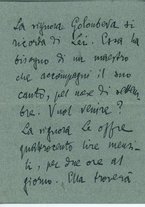 La signora Goloubeva si
ricorda di Lei. Essa ha
bisogno di un maestro
che accompagni il suo
canto, pel mese di settem-
bre. Vuol venire?
La signora le offre
quattrocento lire mensi-
li, per due ore al
giorno. Ella troverà